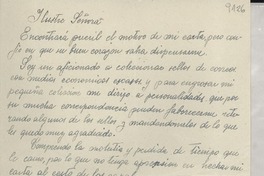 9126
Ilustre Señora:
Encontrará pueril el motivo de mi carta, pero con-
fío en que mi buen corazón sabrá dispensarme.
Soy un aficionado a coleccionar sellos de correos
con medios económicos escasos y para engrosar mi
pequeña colección me dirijo a personalidades que por
su mucha correspondencia pueden favorecerme reti-
rando algunos de los sellos y mandándomelos de lo que
le quedo muy agradecido.
Comprendo la molestia y perdida de tiempo que
le causo, por lo que no tengo en echar mi
carta al cesto de los